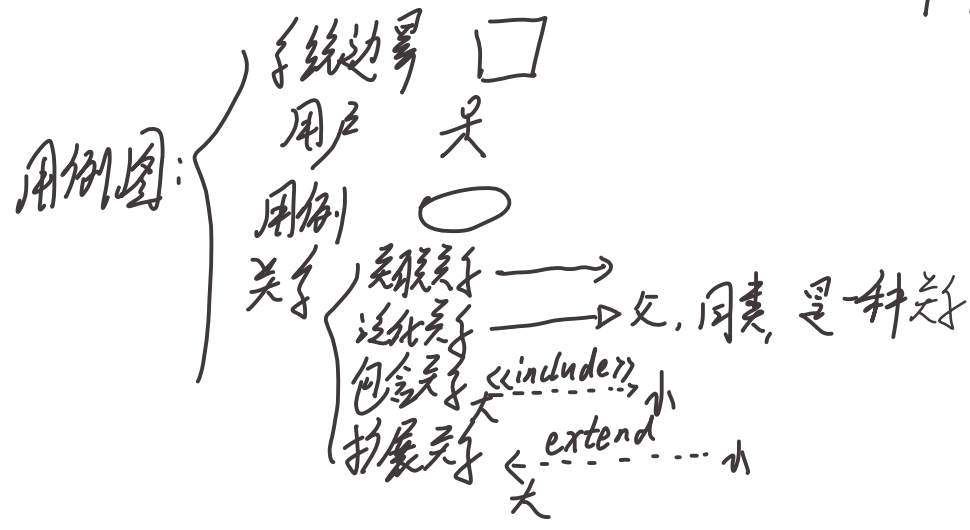 系统边界
用户
用例图:
用例
关系
关联关系
泛化关系 父, 同类, 是一种关系
包含关系 <<include>> 大 小
扩展关系 extend 大 小